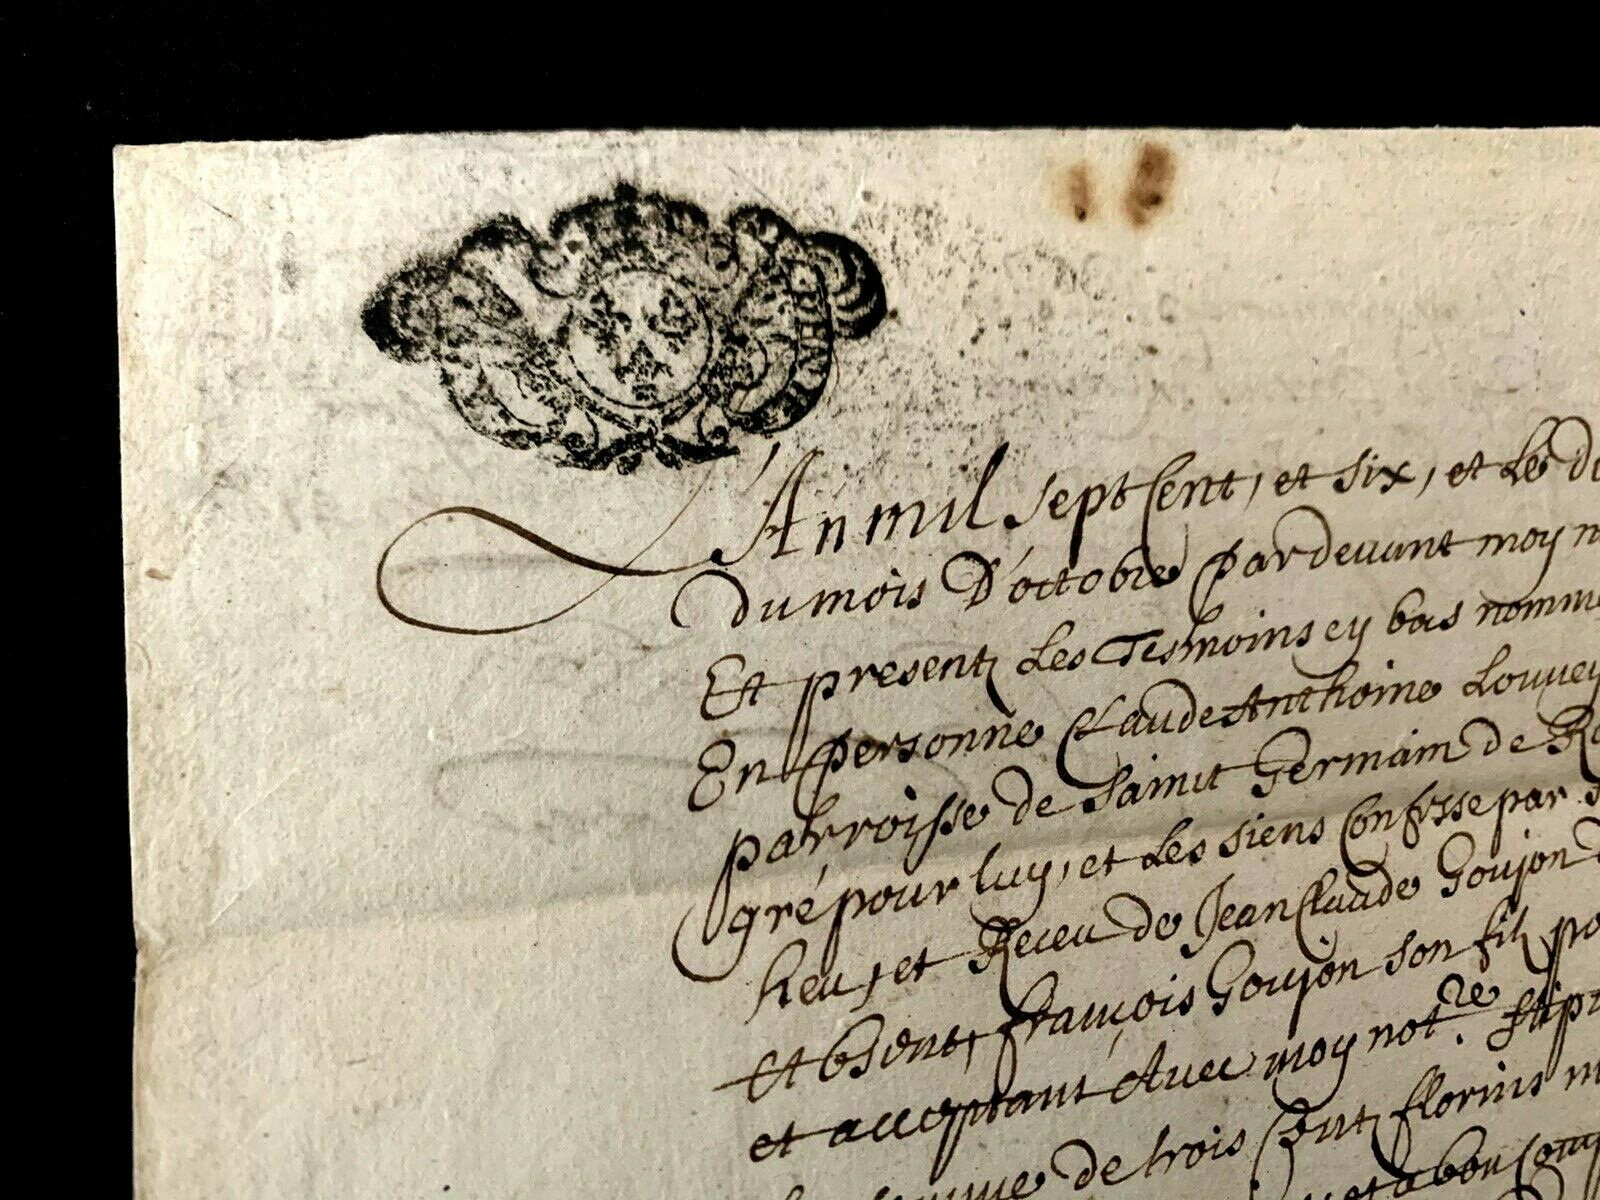 L'An mil sept Cent, et six, et Le
du mois D'octobre pardevant moy
Et presentz Les Tesmoins cy bas nommé
En personne Claude Anthoine Louuey
parroisse de Saint Germain de
gré pour luy, et Les siens Confesse par
heu, et Receu de Jean Claude Goujon
Absent, françois Goujon son filz
et acceptant Avec moy not.re
de trois Centz florins
et a bon